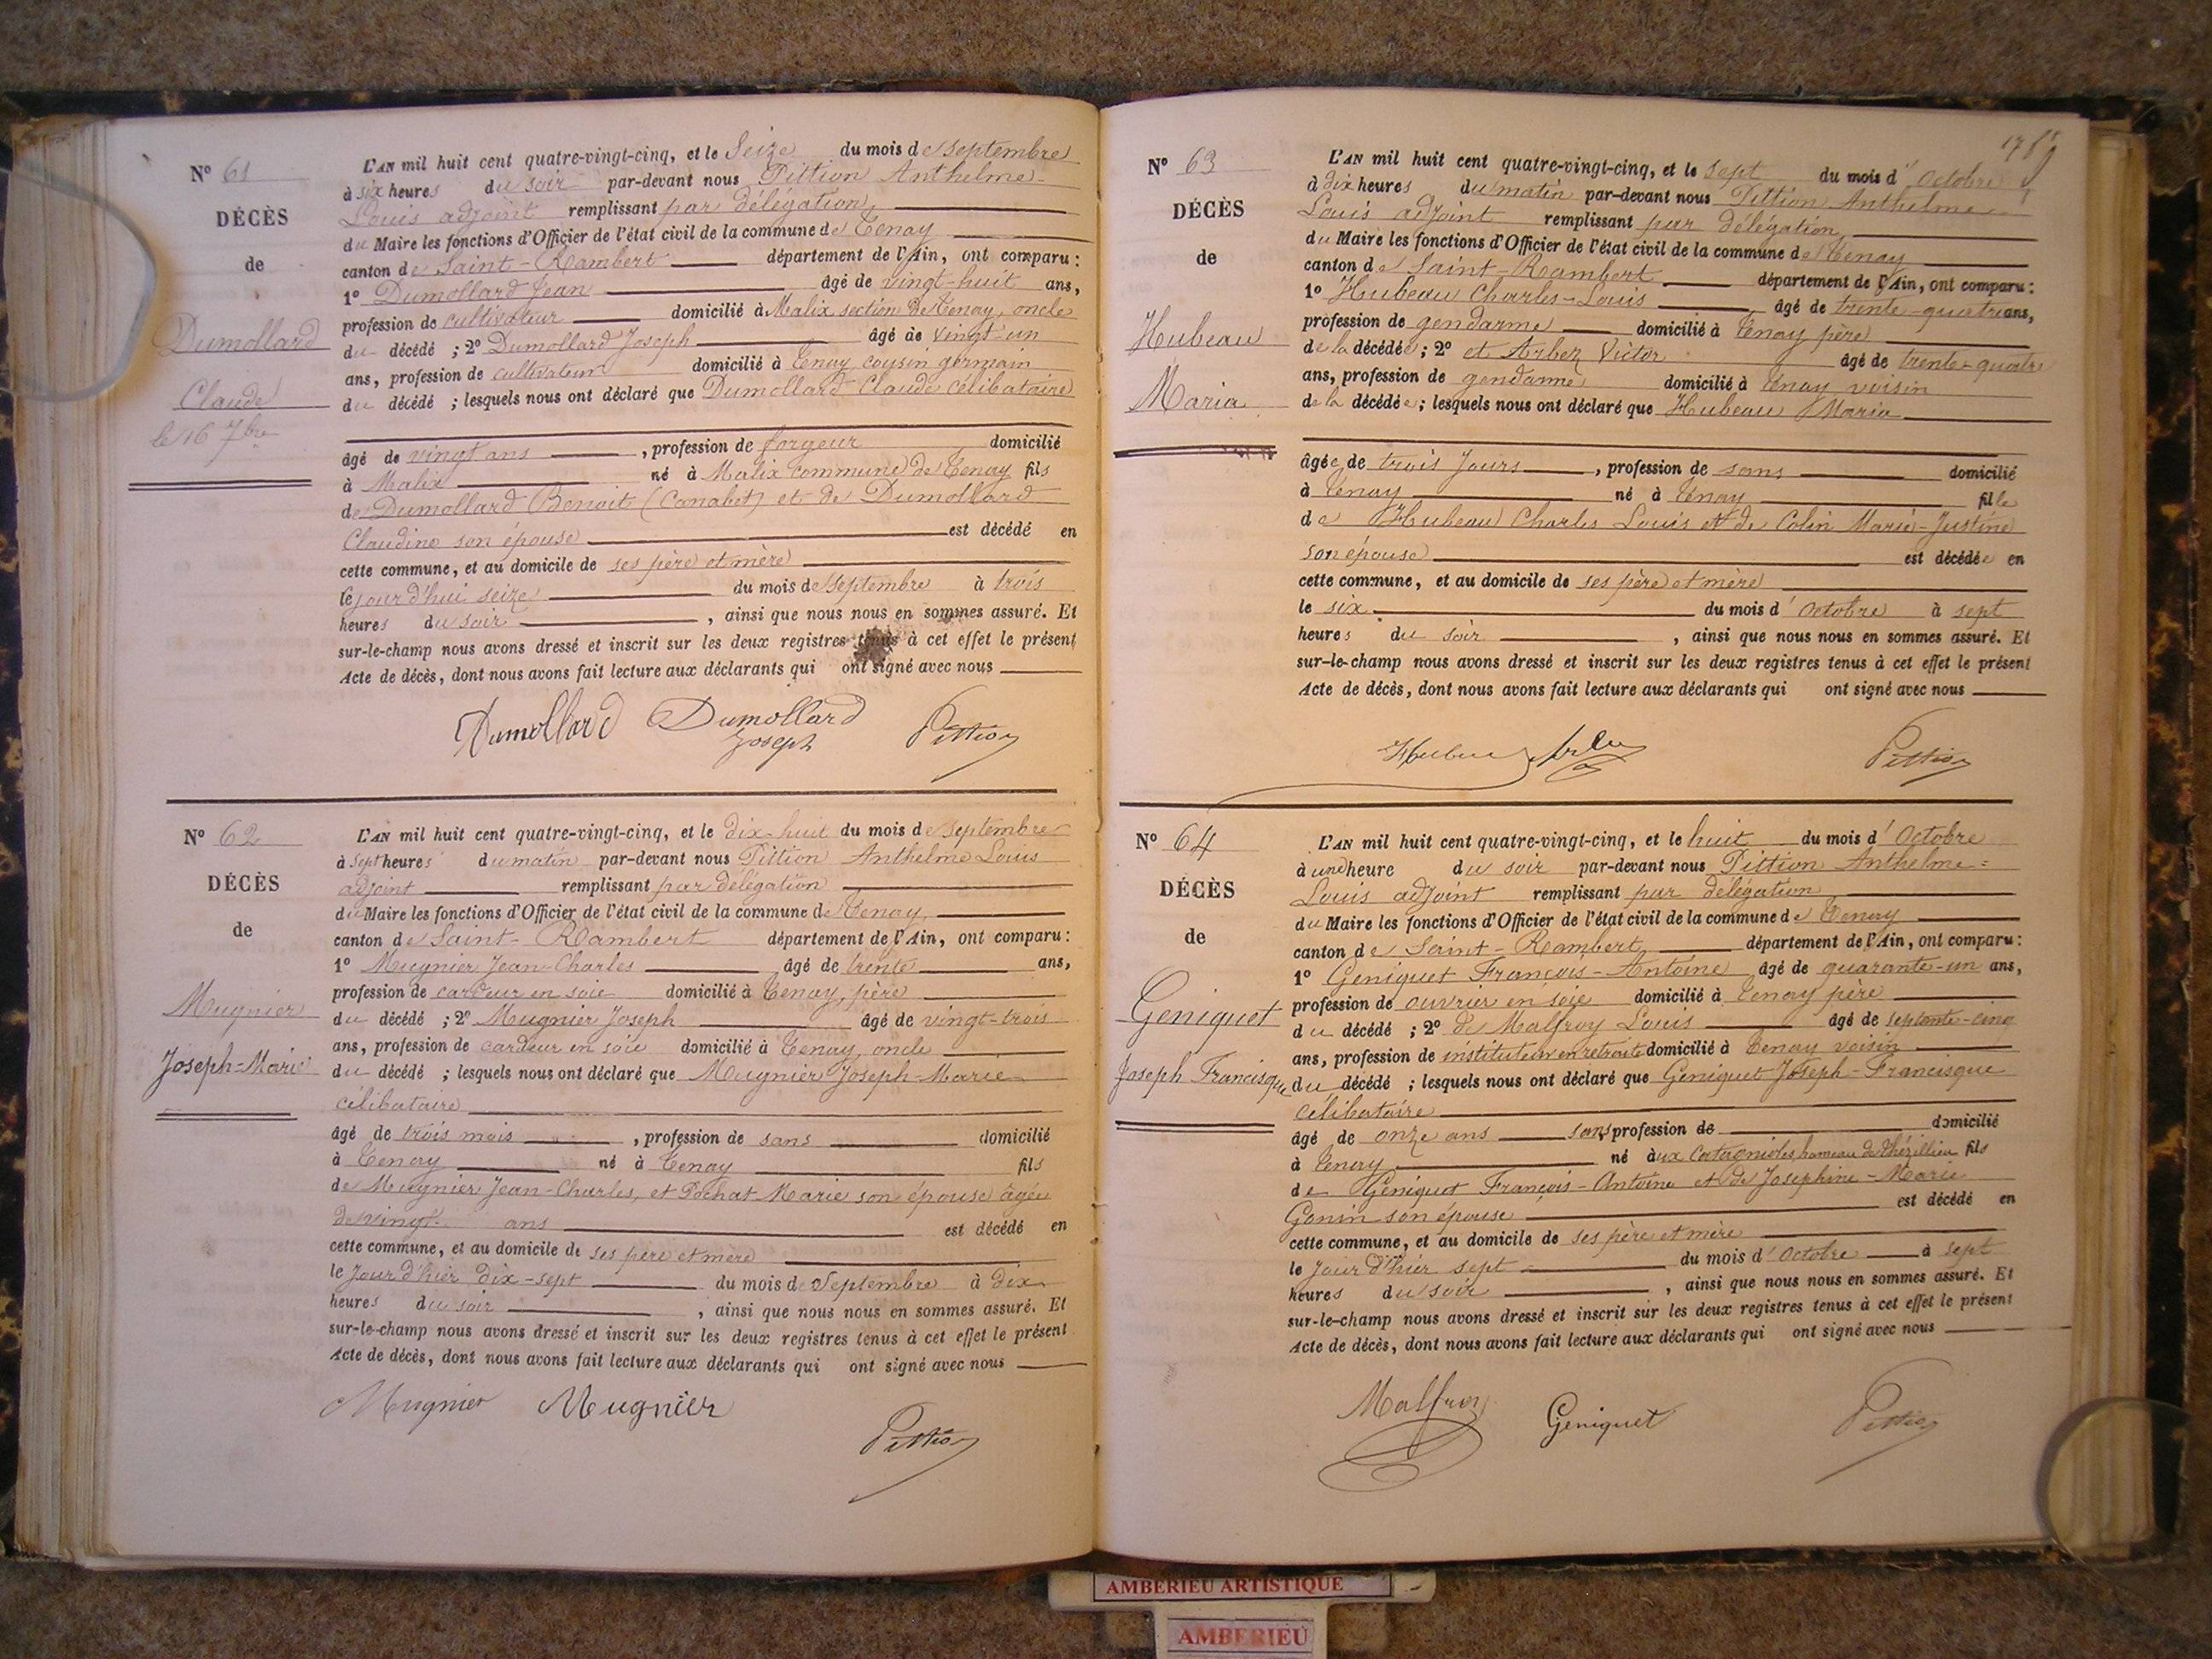 N° 61
DÉCÈS
de
Dumollard
Claude
le 16 7bre
L'AN mil huit cent quatre-vingt-cinq, et le Seize du mois de Septembre
à six heures du soir par-devant nous Pittion Anthelme-
Louis adjoint remplissant par délégation
du Maire les fonctions d'Officier de l'état civil de la commune de Tenay
canton de Saint-Rambert département de l'Ain, ont comparu :
1° Dumollard Jean âgé de vingt-huit ans,
profession de cultivateur domicilié à Malix section de Tenay, oncle
du décédé ; 2° Dumollard Joseph âgé de vingt-un
ans, profession de cultivateur domicilié à Tenay cousin germain
du décédé ; lesquels nous ont déclaré que Dumollard Claude célibataire
âgé de vingt ans, profession de forgeur domicilié
à Malix né à Malix commune de Tenay fils
de Dumollard Benoit (Canabet) et de Dumollard
Claudine son épouse est décédé en
cette commune, et au domicile de ses père et mère
le jour d'hui seize du mois de septembre à trois
heures du soir, ainsi que nous nous en sommes assuré. Et
sur-le-champ nous avons dressé et inscrit sur les deux registres tenus à cet effet le présent
Acte de décès, dont nous avons fait lecture aux déclarants qui ont signé avec nous
Dumollard Dumollard Pittion
Joseph
N° 62
DÉCÈS
de
Mugnier
Joseph-Marie
L'AN mil huit cent quatre-vingt-cinq, et le dix-huit du mois de Septembre
à sept heures du matin par-devant nous Pittion Anthelme Louis
adjoint remplissant par délégation
du Maire les fonctions d'Officier de l'état civil de la commune de Tenay,
canton de Saint-Rambert département de l'Ain, ont comparu :
1° Mugnier Jean-Charles âgé de trente ans,
profession de cardeur en soie domicilié à Tenay, père
du décédé ; 2° Mugnier Joseph âgé de vingt-trois
ans, profession de cardeur en soie domicilié à Tenay, oncle
du décédé ; lesquels nous ont déclaré que Mugnier Joseph-Marie
célibataire
âgé de trois mois, profession de sans domicilié
à Tenay né à Tenay fils
de Mugnier Jean-Charles, et Pochat Marie son épouse âgée
de vingt- ans est décédé en
cette commune, et au domicile de ses père et mère
le jour d'hier dix-sept du mois de Septembre à dix
heures du soir, ainsi que nous nous en sommes assuré. Et
sur-le-champ nous avons dressé et inscrit sur les deux registres tenus à cet effet le présent
Acte de décès, dont nous avons fait lecture aux déclarants qui ont signé avec nous
Mugnier Mugnier
Pittion
N° 63
DÉCÈS
de
Hubeau
Maria
L'AN mil huit cent quatre-vingt-cinq, et le sept du mois d'Octobre
à dix heures du matin par-devant nous Pittion Anthelme
Louis adjoint remplissant par délégation
du Maire les fonctions d'Officier de l'état civil de la commune de Tenay
canton de Saint-Rambert département de l'Ain, ont comparu :
1° Hubeau Charles-Louis âgé de trente-quatre ans,
profession de gendarme domicilié à Tenay père
de la décédée ; 2° et Arbez Victor âgé de trente-quatre
ans, profession de gendarme domicilié à Tenay voisin
de la décédée ; lesquels nous ont déclaré que Hubeau Maria
âgée de trois jours, profession de sans domicilié
à Tenay né à Tenay fille
de Hubeau Charles Louis et de Colin Marie-Justine
son épouse est décédée en
cette commune, et au domicile de ses père et mère
le six du mois d'Octobre à sept
heures du soir, ainsi que nous nous en sommes assuré. Et
sur-le-champ nous avons dressé et inscrit sur les deux registres tenus à cet effet le présent
Acte de décès, dont nous avons fait lecture aux déclarants qui ont signé avec nous
Pittion
N° 64
DÉCÈS
de
Geniquet
Joseph Francisque
L'AN mil huit cent quatre-vingt-cinq, et le huit du mois d'Octobre
à une heure du soir par-devant nous Pittion Anthelme=
Louis adjoint remplissant par délégation
du Maire les fonctions d'Officier de l'état civil de la commune de Tenay
canton de Saint-Rambert département de l'Ain, ont comparu :
1° Geniquet François-Antoine âgé de quarante-un ans,
profession de ouvrier en soie domicilié à Tenay père
du décédé ; 2° de Malfroy Louis âgé de septante-cinq
ans, profession de instituteur en retraite domicilié à Tenay voisin
du décédé ; lesquels nous ont déclaré que Geniquet Joseph-Francisque
célibataire
âgé de onze ans sans profession de domicilié
à Tenay né aux Catagnioles hameau de Thézillieu fils
de Geniquet François-Antoine et de Josephine-Marie
Gonin son épouse est décédé en
cette commune, et au domicile de ses père et mère
le jour d'hier sept du mois d'Octobre à sept
heures du soir, ainsi que nous nous en sommes assuré. Et
sur-le-champ nous avons dressé et inscrit sur les deux registres tenus à cet effet le présent
Acte de décès, dont nous avons fait lecture aux déclarants qui ont signé avec nous
Malfroy Geniquet Pittion
AMBERIEU ARTISTIQUE
AMBERIEU